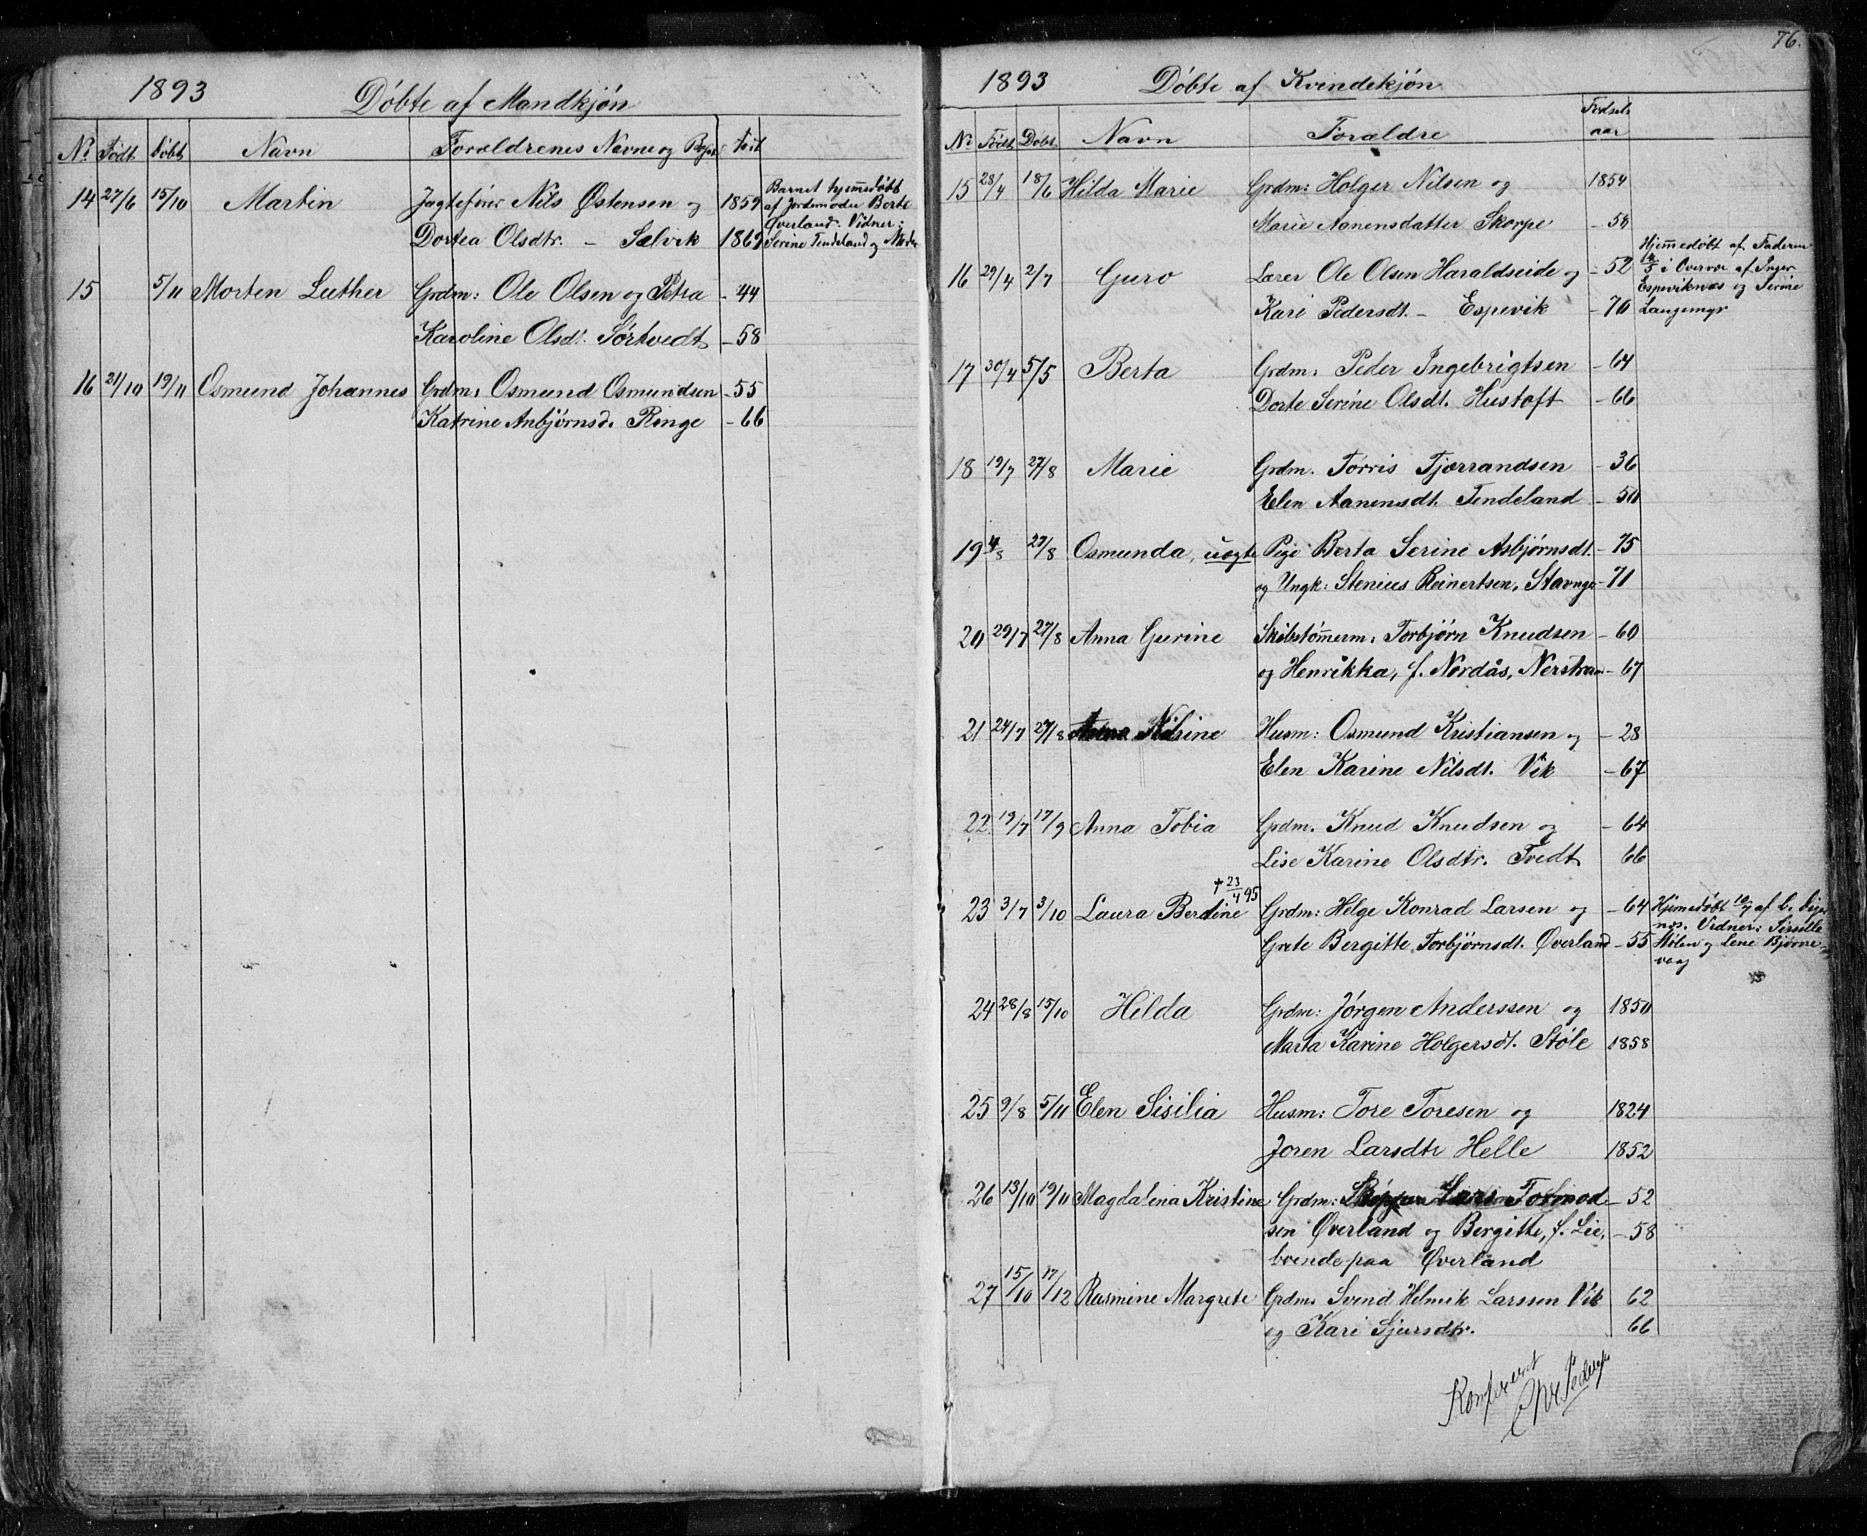 1893
Døbte af Mandkjøn
No Født Døbt Navn Forældrenes Navne og
14 27/6 15/10 Martin Jagtefører Nils Østensen og 1859 Barnet hjemmedøbt
af Jordemoder Berte
Øverland. Vidner:
Dortea Olsdtr. – Sælvik 1869 Serine Tendeland og Moder
15 5/11 Morten Luther Grdm: Ole Olsen og Petra - 44
Karoline Olsdt. Sørtvedt - 58
16 21/10 19/11 Osmund Johannes Grdm: Osmund Osmundsen - 55
Katrine Anbjørnsd. Ringe - 66
76.
1893
Døbte af Kvindekjøn
No Født Døbt Navn Forældre Fødsels
aar
15 28/4 18/6 Hilda Marie Grdm: Holger Nilsen og 1854
Marie Aanensdatter Skorpe - 58
16 29/4 2/7 Guro Lærer Ole Olsen Haraldseide og - 52 Hjemmedøbt af Faderen
i Overvær af Inger
Espeviknes og Serine
Kari Pedersdt. – Espevik - 70 Langemyr
17 30/4 5/5 Berta Grdm: Peder Ingebrigtsen - 64
Dorte Serine Olsdt. Hustoft - 66
18 19/7 27/8 Marie Grdm. Torris Tjærrandsen - 36
Elen Aanensdt. Tendeland - 50
19 4/8 27/8 Osmunda, uægte Pige Berta Serine Asbjørnsdt. - 75
og Ungk: Stenius Reinertsen, Stavnge - 71
20 29/7 27/8 Anna Gurine Skibstømerm: Torbjørn Knudsen - 60
og Henrikka, f. Nordås, Nerstran - 67
21 24/7 27/8 Nilsine Husm: Osmund Kristiansen og - 28
Elen Karine Nilsdt. Vik - 67
22 19/7 17/9 Anna Tobia Grdm. Knud Knudsen og - 64
Lise Karine Olsdtr. Tvedt 66
† 23/4 95
23 3/7 3/10 Laura Berdine Grdm: Helge Konrad Larsen og - 64 Hjemedøbt 10/7 af
Vidner: Sissille
Grete Bergitte Torbjørnsdt. Øverland - 55 Stølen og Lene Bjørne-
vaag
24 28/8 15/10 Hilda Grdm: Jørgen Anderssen og 1850
Marta Karine Holgersdt. Støle 1858
25 9/8 5/11 Elen Sisilia Husm: Tore Toresen og 1824
Joren Larsdtr Helle 1852
26 13/10 19/11 Magdalena Kristine Grdm: Lars Tormod - 52
sen Øverland og Bergitte, f. Lie, - 58
boende paa Øverland
27 15/10 17/12 Rasmine Margrete Grdm. Svend Helmik Larssen Vik 62
og Kari Sjursdtr. 66